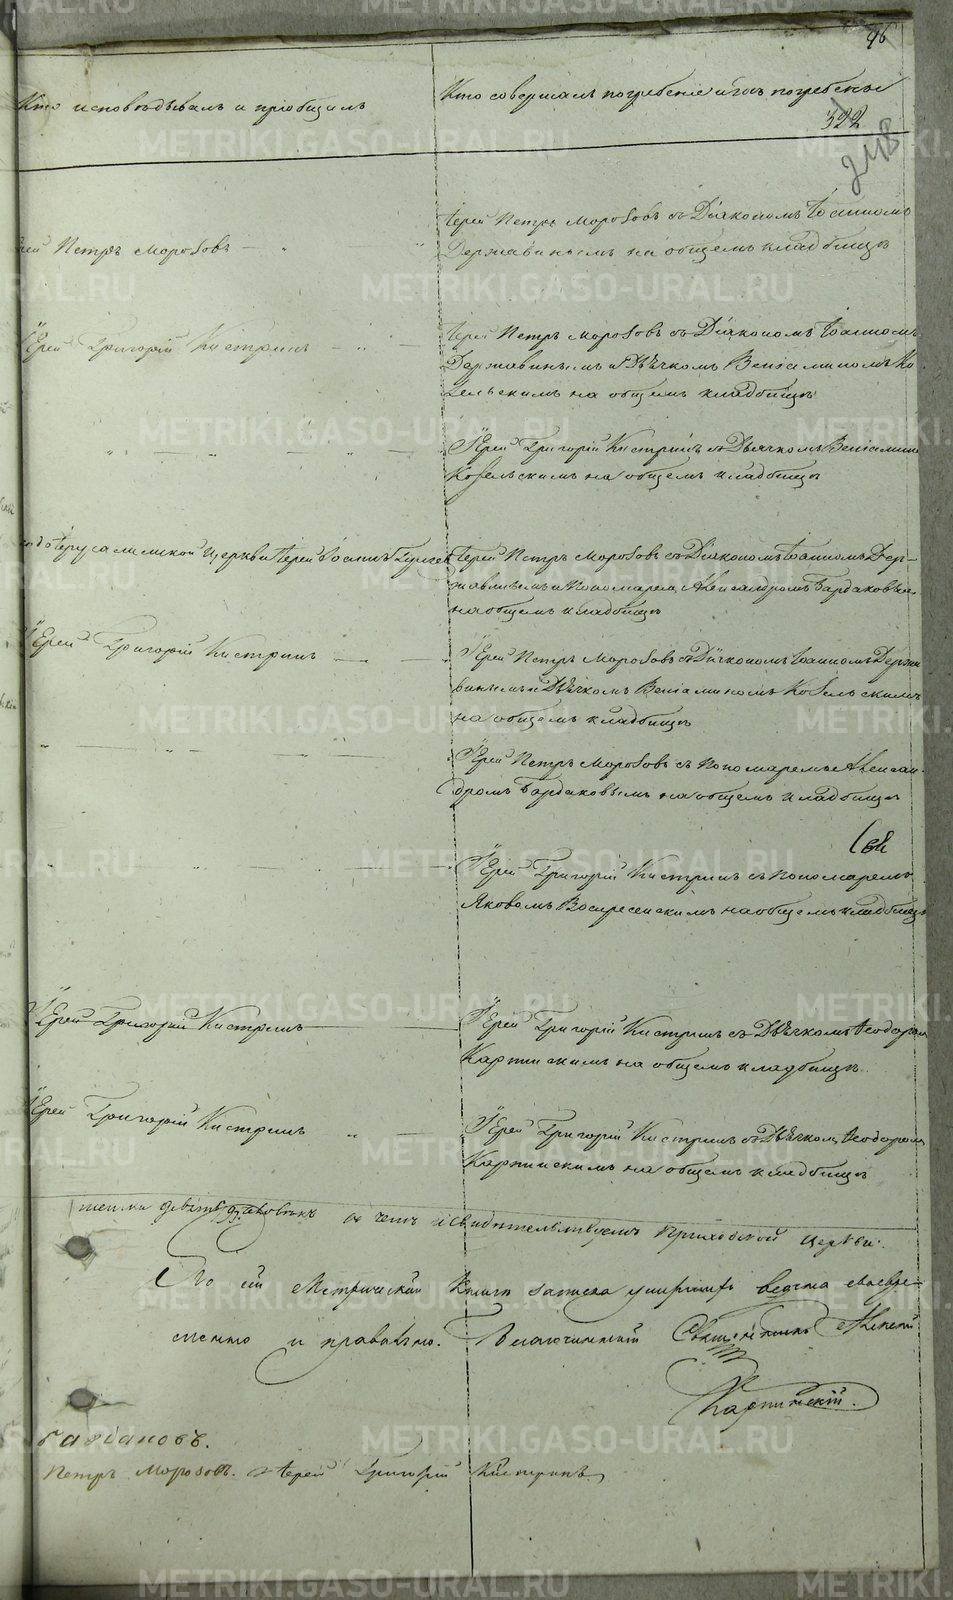 96
Кто исповѣдывалъ и пріобщилъ
Кто совершалъ погребеніе и гдѣ погребены
322
248
Іерей Петръ Морозовъ съ Діакономъ Іоанномъ
Державинымъ на общемъ кладбищѣ
рей Петръ Морозовъ — "
Іерей Григорій Кистринъ — " —
Іерей Петръ Морозовъ съ Діакономъ Іоанномъ
Державинымъ и Дьячкомъ Веніаминомъ Ко
зельскимъ на общемъ кладбищѣ
Іерей Григорій Кистринъ съ Дьячкомъ Веніамин
Козельскимъ на общемъ кладбищѣ
Іерусалимской Церкви Іерей Іоаннъ
Іерей Петръ Морозовъ съ Діакономъ Іоанномъ Дер-
жавинымъ и Пономарем Александромъ Бардаковым
на общемъ кладбищѣ
Іерей Григорій Кистринъ — —
Іерей Петръ Морозовъ съ Діакономъ Іоанномъ Держа
винымъ и Дьячкомъ Веніаминомъ Козельскимъ
на общемъ кладбищѣ
Іерей Петръ Морозовъ съ Пономаремъ Алексан-
дромъ Бардаковымъ на общемъ кладбищѣ
Іерей Григорій Кистринъ съ Пономаремъ
Яковомъ Воскресенскимъ на общемъ кладбищѣ
Іерей Григорій Кистринъ —
Іерей Григорій Кистринъ съ Дьячкомъ Ѳеодоромъ
Карпинскимъ на общемъ кладбищѣ
Іерей Григорій Кистринъ " —
Іерей Григорій Кистринъ съ Дьячком Ѳеодоромъ
Карпинскимъ на общемъ кладбищѣ
девять человѣкъ въ чемъ и свидѣтельствуемъ Приходской Церкви.
По сей Метрической Книгѣ записка умершихъ ведена своевре-
менно и правильно. Благочинный Священникъ Алексій
Карпинскій.
Петръ Морозовъ. Іерей Григорій Кистринъ
METRIKI.GASO-URAL.RU